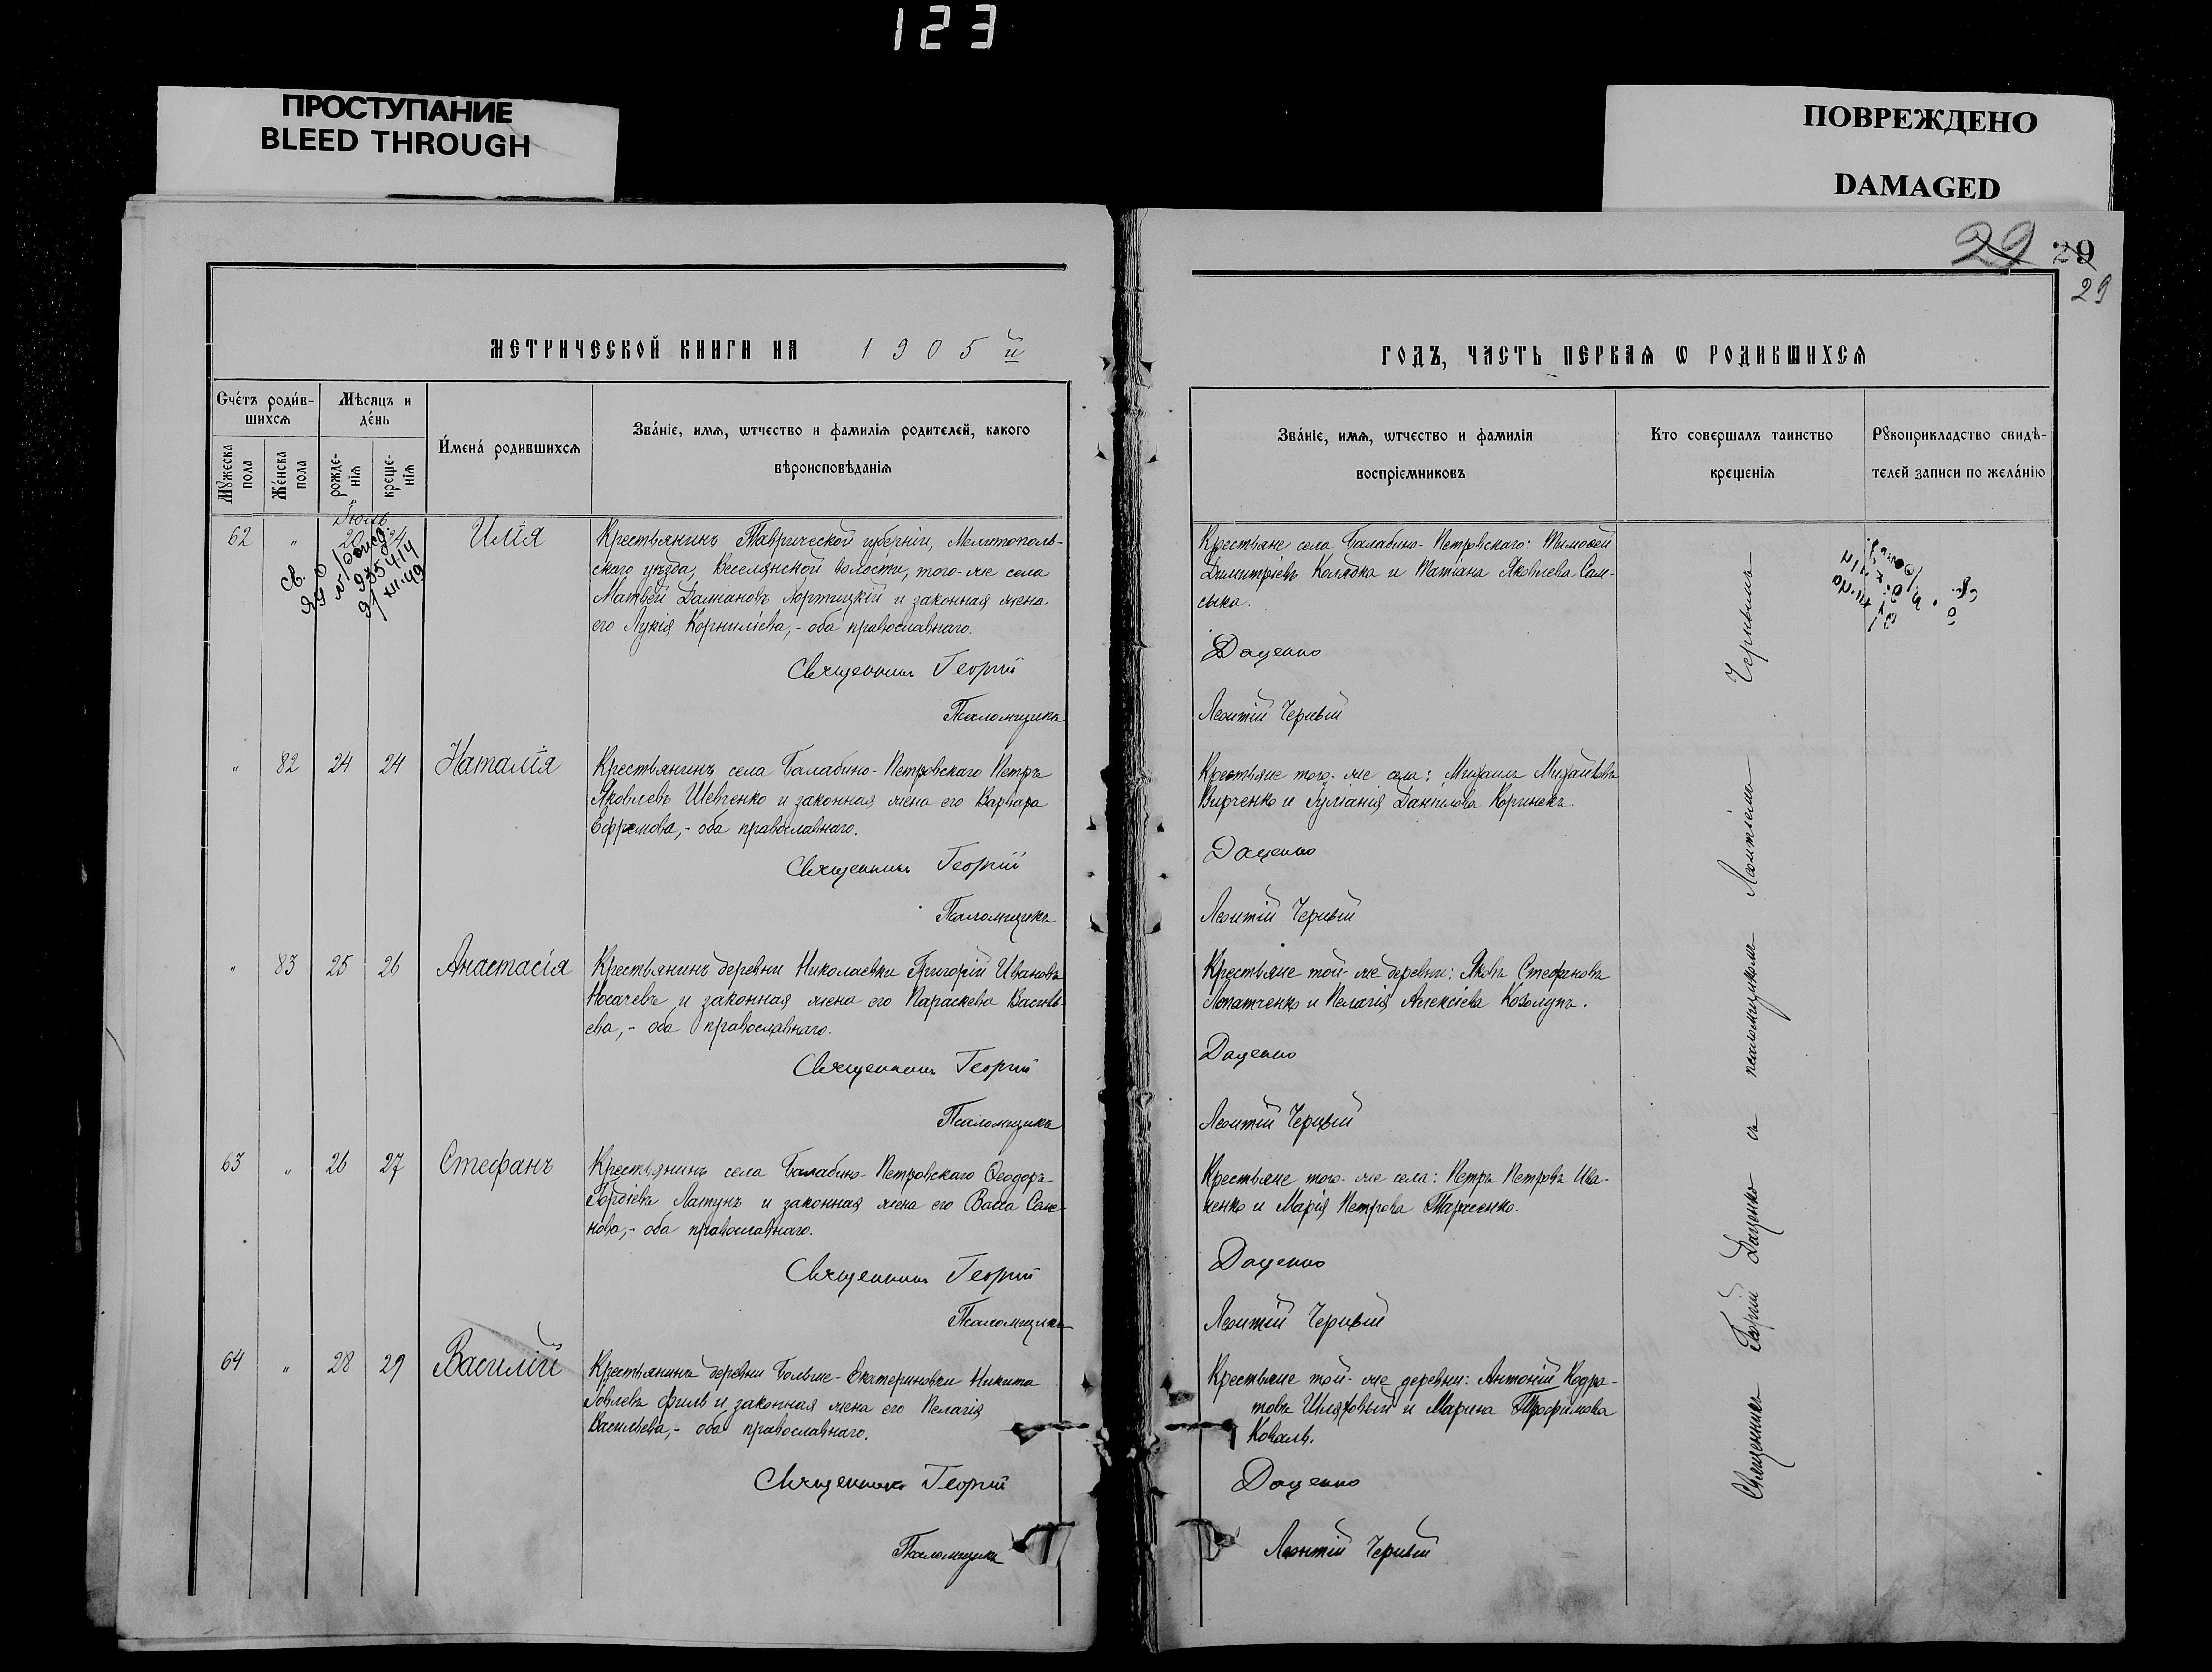 123
ПРОСТУПАНИЕ
BLEED THROUGH
ПОВРЕЖДЕНО
DAMAGED
29 29
29
МЕТРИЧЕСКОЙ КНИГИ НА 1905й
Счетъ родив-
шихсѧ
Мѣсяцъ и
день
Мꙋжеска
пола
Женска
пола
рожде-
нїѧ
креще-
нїѧ
Имена родившихсѧ
Званїе, имѧ, ѿтчество и фамилїѧ родителей, какого
вѣроисповѣданїѧ
Іюль
62 " 20 24 Илія
Крестьянинъ Таврической губерніи, Мелитополь-
скаго уѣзда, Веселянской волости, того-же села
Матвей Даміановъ Хортицкій и законная жена
его Лукія Корниліева,- оба православнаго.
Священникъ Георгій
Псаломщикъ
" 82 24 24 Наталія
Крестьянинъ села Балабино-Петровскаго Петръ
Яковлевъ Шевченко и законная жена его Варвара
Ефремова,- оба православнаго.
Священникъ Георгій
Псаломщикъ
" 83 25 26 Анастасія
Крестьянинъ деревни Николаевки Григорій Ивановъ
Носачевъ и законная жена его Параскева Василь-
ева,- оба православнаго.
Священникъ Георгій
Псаломщикъ
63 " 26 27 Стефанъ
Крестьянинъ села Балабино-Петровскаго Ѳеодоръ
Латунъ и законная жена его Васса Семе-
нова,- оба православнаго.
Священникъ Георгій
Псаломщикъ
64 " 28 29 Василій
Крестьянинъ деревни Больше-Екатериновки Никита
Филь и законная жена его Пелагія
Васильева,- оба православнаго.
Священникъ Георгій
Псаломщикъ
ГОДЪ, ЧАСТЬ ПЕРВАѦ Ѡ РОДИВШИХСѦ
Званїе, имѧ, ѿтчество и фамилїѧ
воспрїемниковъ
Кто совершалъ таинство
крещенїѧ
Рꙋкоприкладство свидѣ-
телей записи по желанїю
Крестьяне села Балабино-Петровскаго: Тимоѳей
Димитріевъ Колядка и Татіана Яковлева Сам-
сыка.
Даценко
Леонтій Черный
Крестьяне того-же села: Михаилъ Михайловъ
Вирченко и Іуліанія Даніилова Коринекъ.
Даценко
Леонтій Черный
Крестьяне той-же деревни: Яковъ Стефановъ
Лопатченко и Пелагія Алексіева Коволупъ.
Даценко
Леонтій Черный
Крестьяне того-же села: Петръ Петровъ Ива-
ченко и Марія Петрова
Даценко
Леонтій Черный
Крестьяне той-же деревни: Антоній Кодра-
товъ Шляховый и Марина Трофимова
Коваль.
Даценко
Леонтій Черный
Священникъ Георгій Даценко съ псаломщикомъ Леонтіемъ Чернымъ